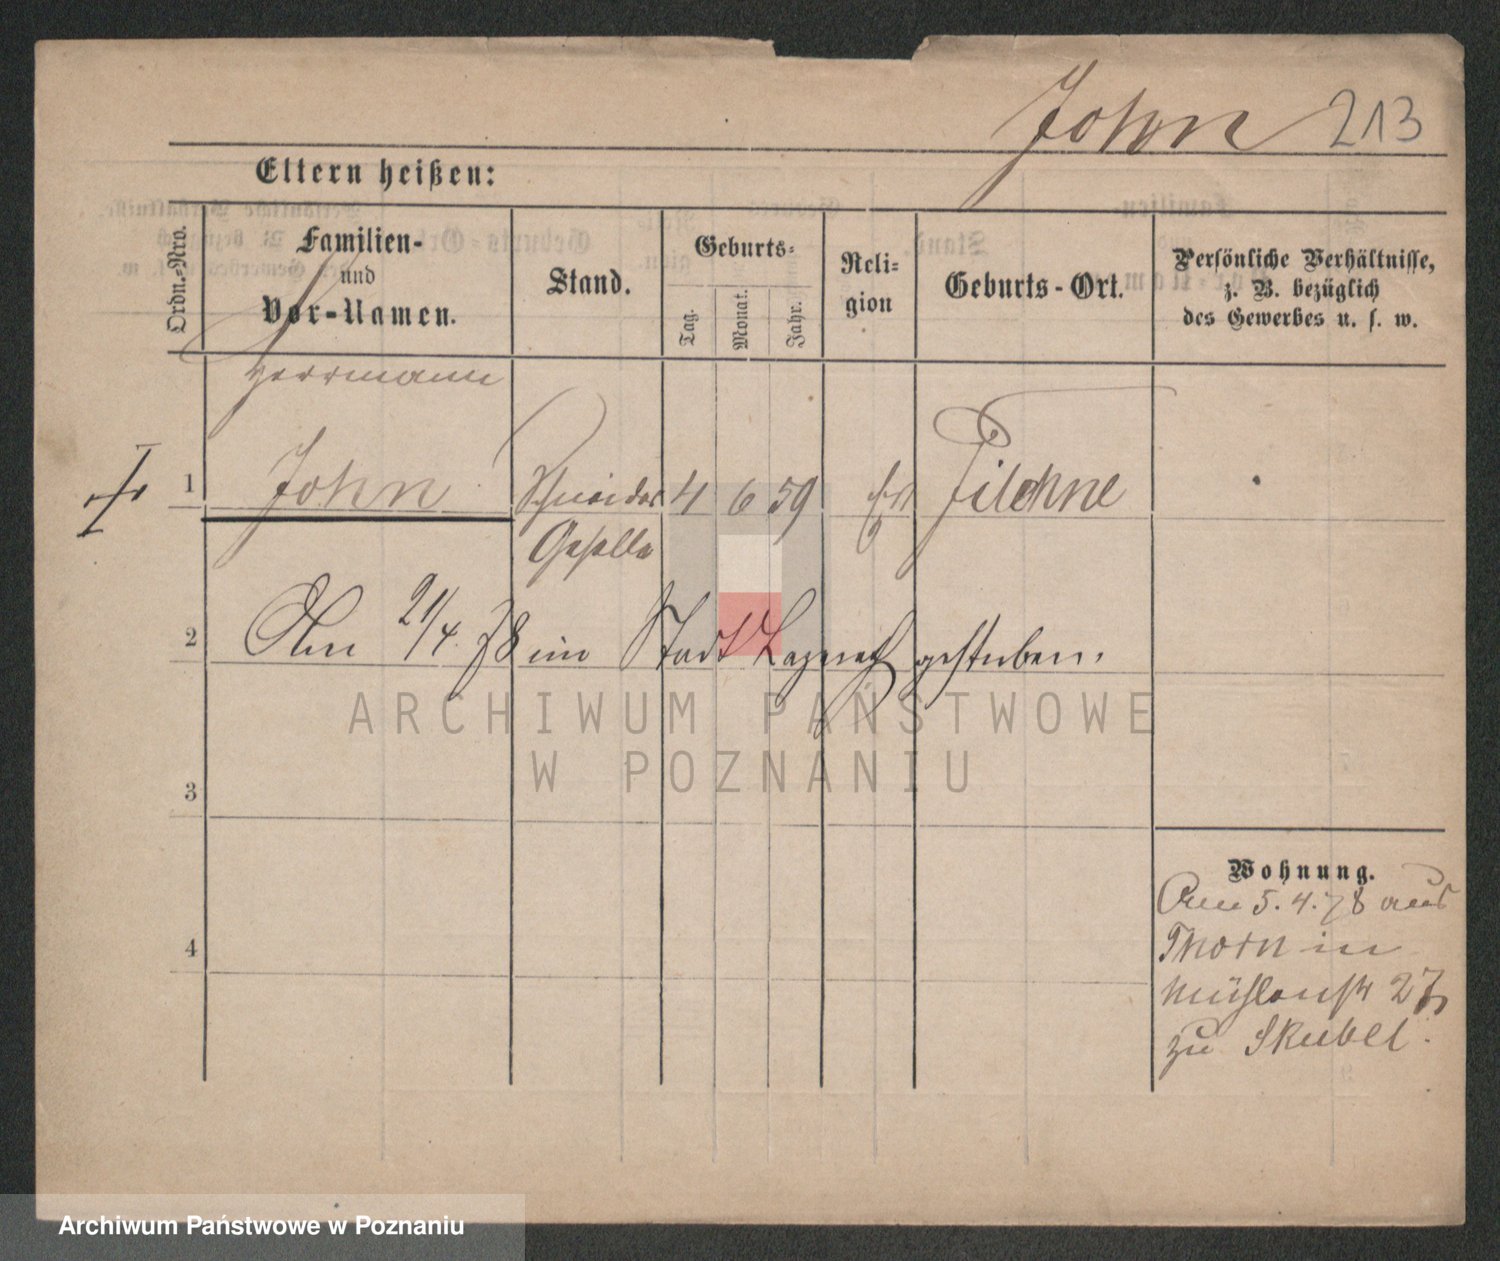 John 213
Eltern heißen:
Ordn.-Nro.
Familien-
und
Vor-Namen.
Stand.
Geburts-
Tag.
Monat.
Jahr.
Reli-
gion
Geburts-Ort.
Persönliche Verhältnisse,
z. B. bezüglich
des Gewerbes u. s. w.
Herrmann
1 John Schneider 4 6 59 Filehne
Geselle
2 Am 21/4. 78 im Stadt Lazareth gestorben.
3
4
Wohnung.
Am 5. 4. 78 aus
Thorn in
Mühlenstr 27
zu Skubel.
ARCHIWUM PAŃSTWOWE
W POZNANIU
Archiwum Państwowe w Poznaniu